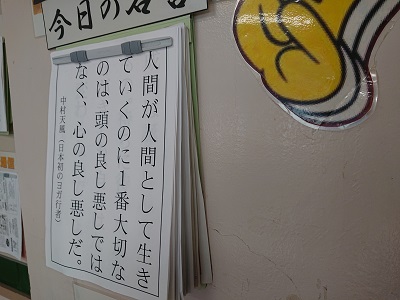 今日の名言
人間が人間として生き
ていくのに1番大切な
のは、頭の良し悪しでは
なく、心の良し悪しだ。
中村天風（日本初のヨガ行者）